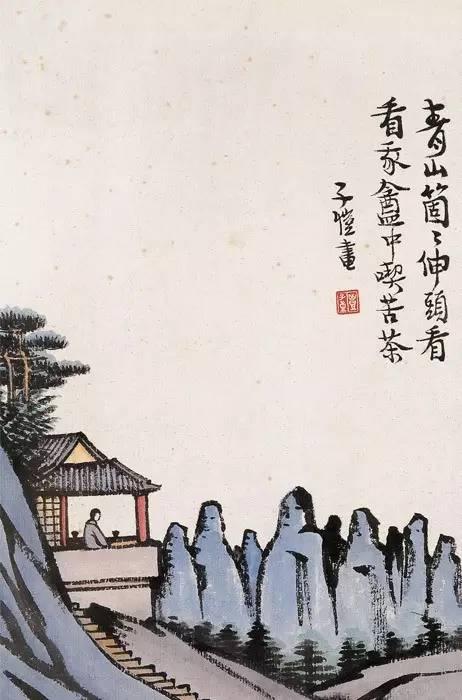 青山箇々伸頭看
看我盦中喫苦茶
子愷畫